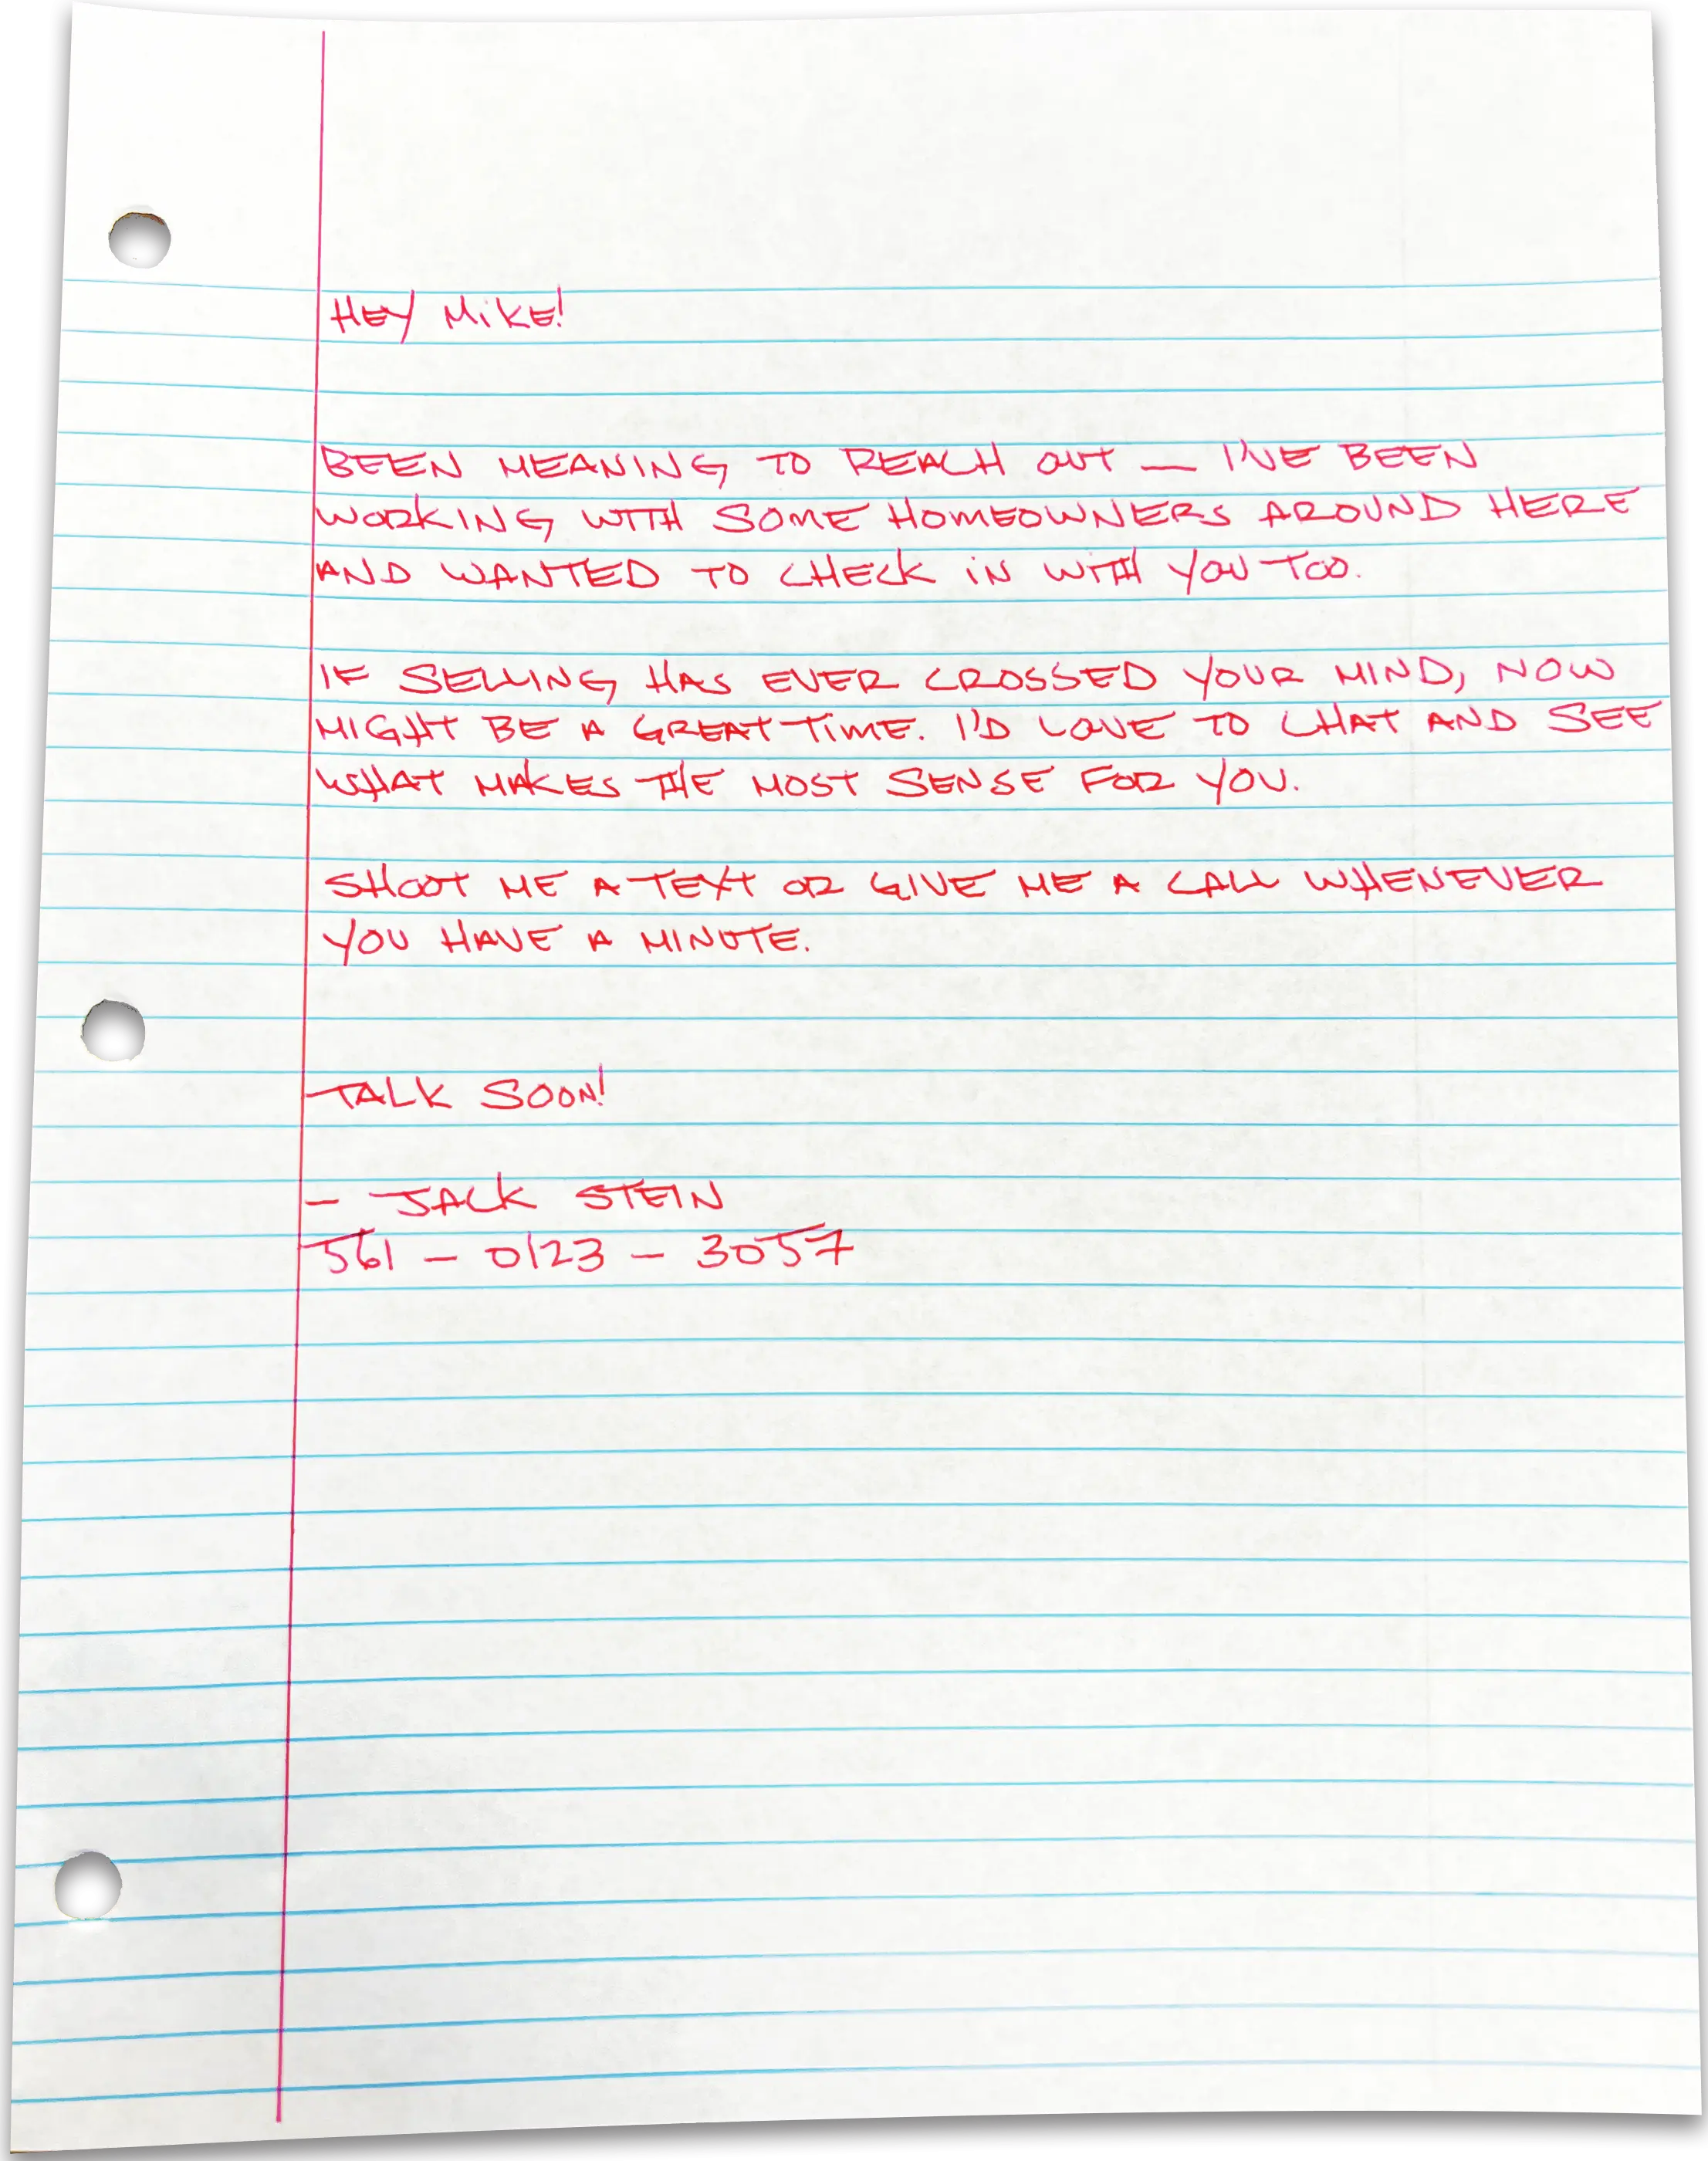 HEY MiKE!
BEEN MEANING TO REACH OUT — I'VE BEEN
WORKING WITH SOME HOMEOWNERS AROUND HERE
AND WANTED TO CHECK iN WITH YOU TOO.
IF SELLING HAS EVER CROSSED YOUR MIND, NOW
MIGHT BE A GREAT TiME. I'D LOVE TO CHAT AND SEE
WHAT MAKES THE MOST SENSE FOR YOU.
SHOOT ME A TEXT OR GIVE ME A CALL WHENEVER
YOU HAVE A MINUTE.
TALK SOON!
- JACK STEIN
561 - 0123 - 3057